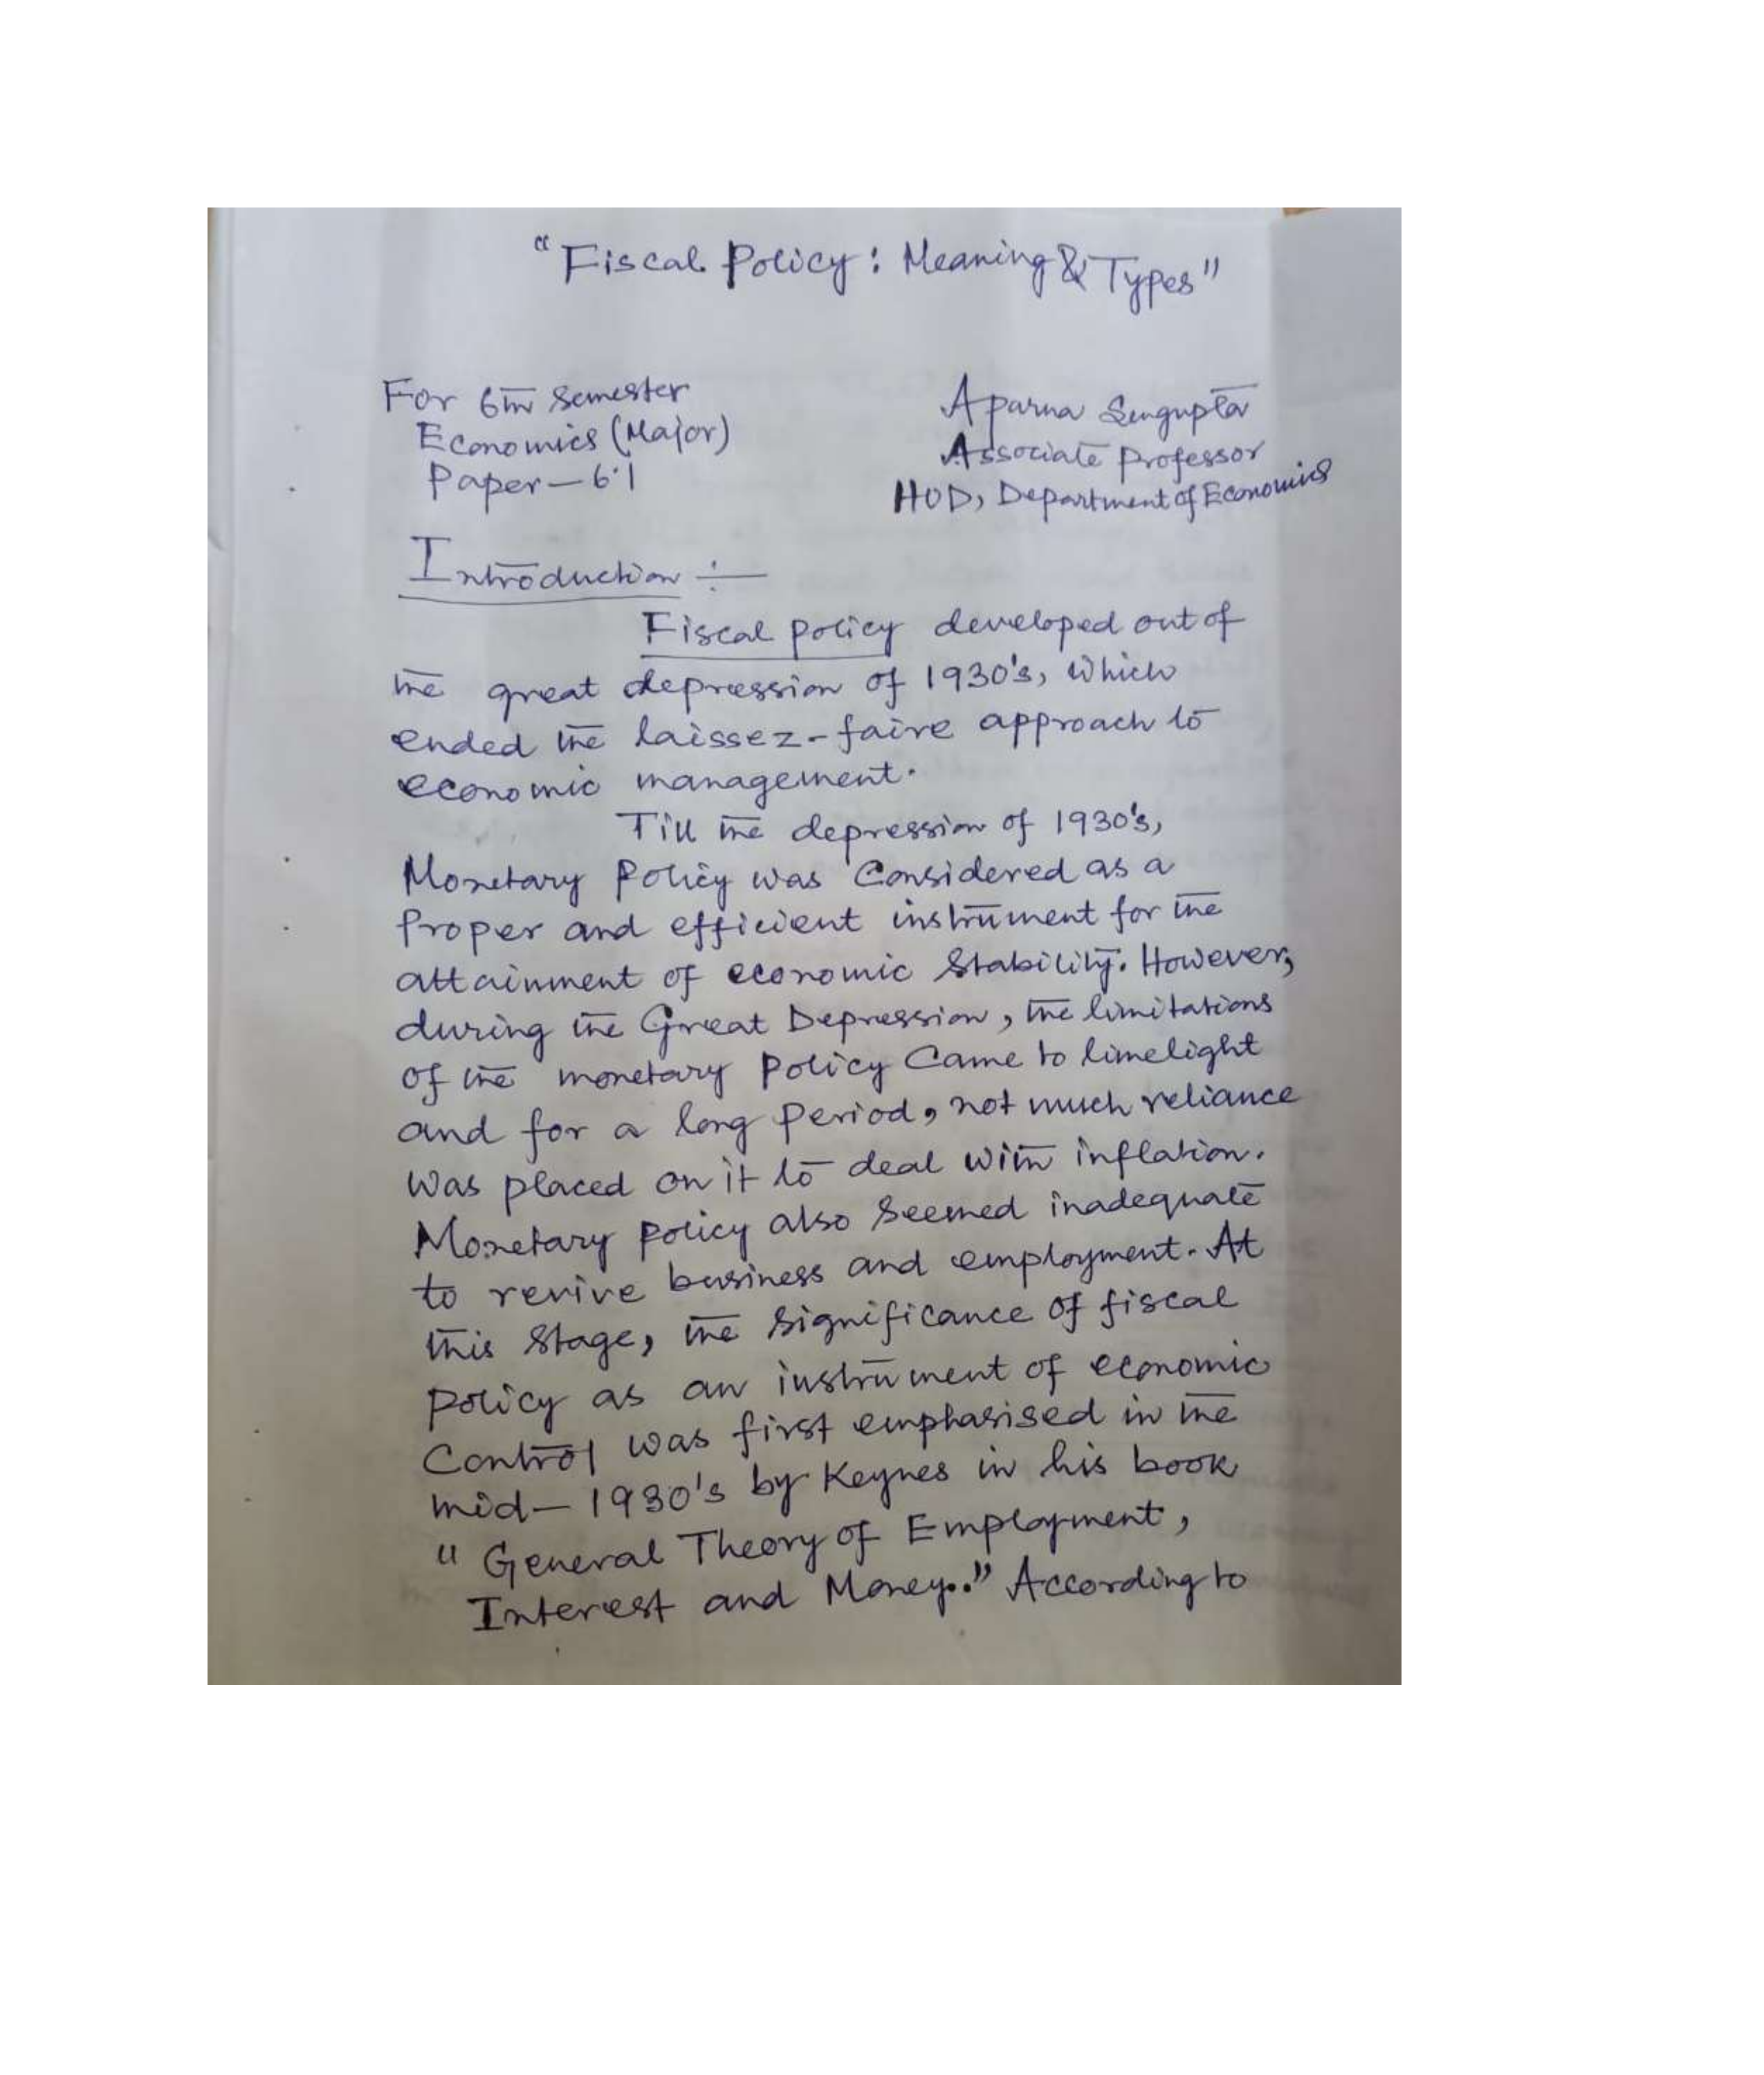 "Fiscal Policy: Meaning & Types"
For 6th Semester
Economics (Major)
Paper-6.1
Aparna Sengupta
Associate Professor
HOD, Department of Economics
Introduction :-
Fiscal policy developed out of
the great depression of 1930's, which
ended the laissez-faire approach to
economic management.
Till the depression of 1930's,
Monetary Policy was Considered as a
Proper and efficient instrument for the
attainment of economic Stability. However,
during the Great Depression, the limitations
of the monetary policy Came to limelight
and for a long Period, not much reliance
was placed on it to deal with inflation.
Monetary policy also Seemed inadequate
to revive business and employment. At
this Stage, the Significance of fiscal
policy as an instrument of economic
Control was first emphasised in the
mid-1930's by Keynes in his book
"General Theory of Employment,
Interest and Money.." According to